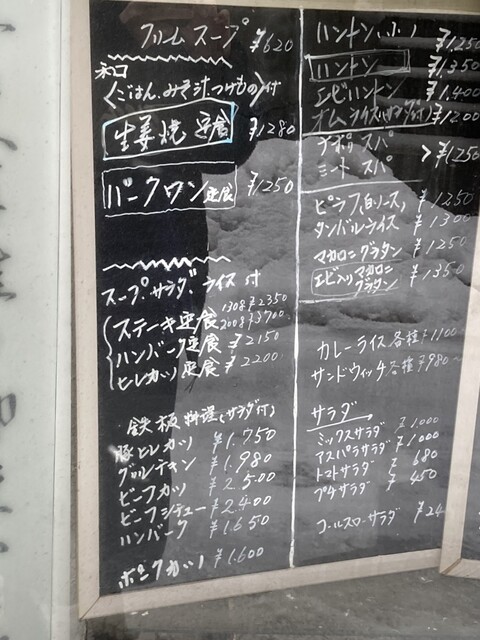 クリームスープ ¥620
和口
〈ごはん、みそ汁、つけもの〉付
生姜焼定食 ¥1280
パークワン定食 ¥1250
スープ、サラダ、ライス付
ステーキ定食 130g ¥2350
200g ¥3700
ハンバーク定食 ¥2150
ヒレカツ定食 ¥2200
鉄板料理(サラダ付)
豚ヒレカツ ¥1.750
グリルチキン ¥1.980
ビーフカツ ¥2500
ビーフシチュー ¥2.400
ハンバーク ¥1.650
ポークカツ ¥1.600
ハントン(小) ¥1.250
ハントン ¥1.350
エビハントン ¥1.400
オムライス ¥1200
ナポリスパ
ミートスパ > ¥1250
ピラフ(白ソース) ¥1250
タンバルライス ¥1300
マカロニグラタン ¥1250
エビ入りマカロニグラタン ¥1350
カレーライス各種 ¥1100
サンドウィッチ各種 ¥980〜
サラダ
ミックスサラダ ¥1.000
アスパラサラダ ¥1000
トマトサラダ ¥680
プチサラダ ¥450
コールスローサラダ ¥24